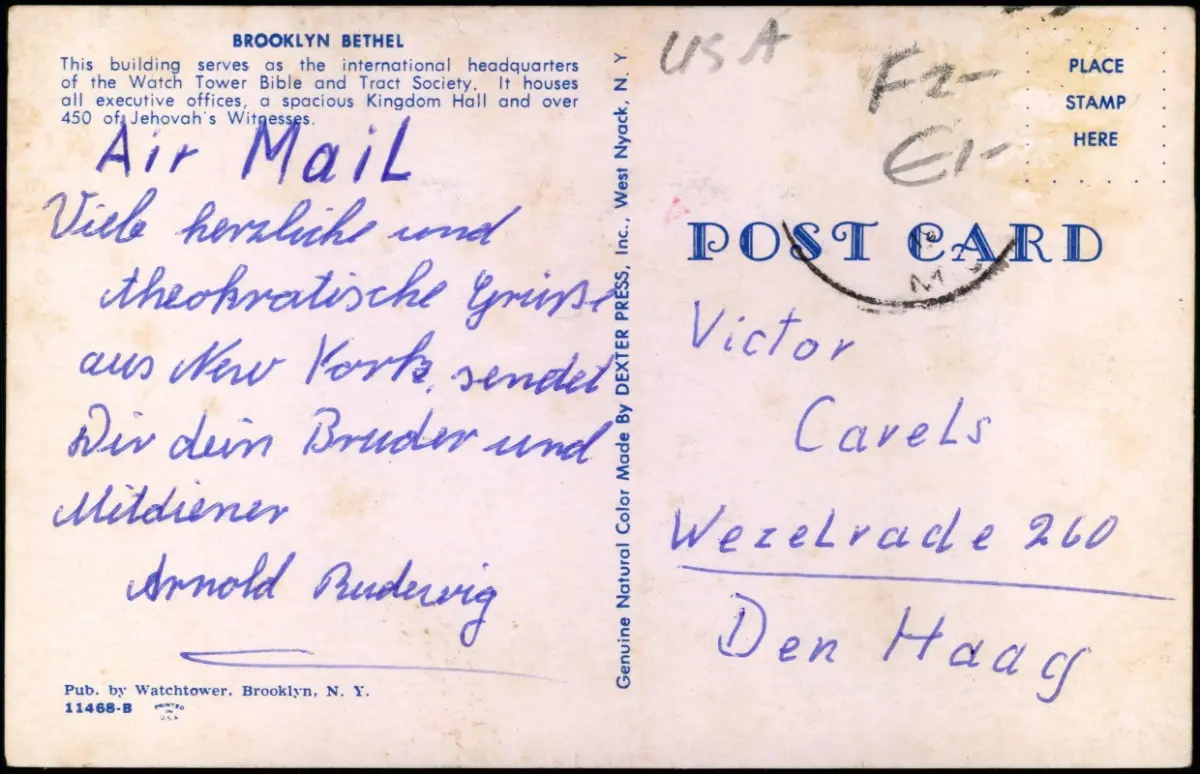 BROOKLYN BETHEL
This building serves as the international headquarters
of the Watch Tower Bible and Tract Society. It houses
all executive offices, a spacious Kingdom Hall and over
450 of Jehovah's Witnesses.
Air Mail
Viele herzliche und
theokratische Grüße
aus New York, sendet
Dir dein Bruder und
Mitdiener
Arnold Rudewig
Pub. by Watchtower, Brooklyn, N. Y.
11468-B
PRINTED
IN
U.S.A.
Genuine Natural Color Made By DEXTER PRESS, Inc., West Nyack, N. Y.
USA
F2-
€1-
PLACE
STAMP
HERE
POST CARD
Victor
Carels
Wezelrade 260
Den Haag